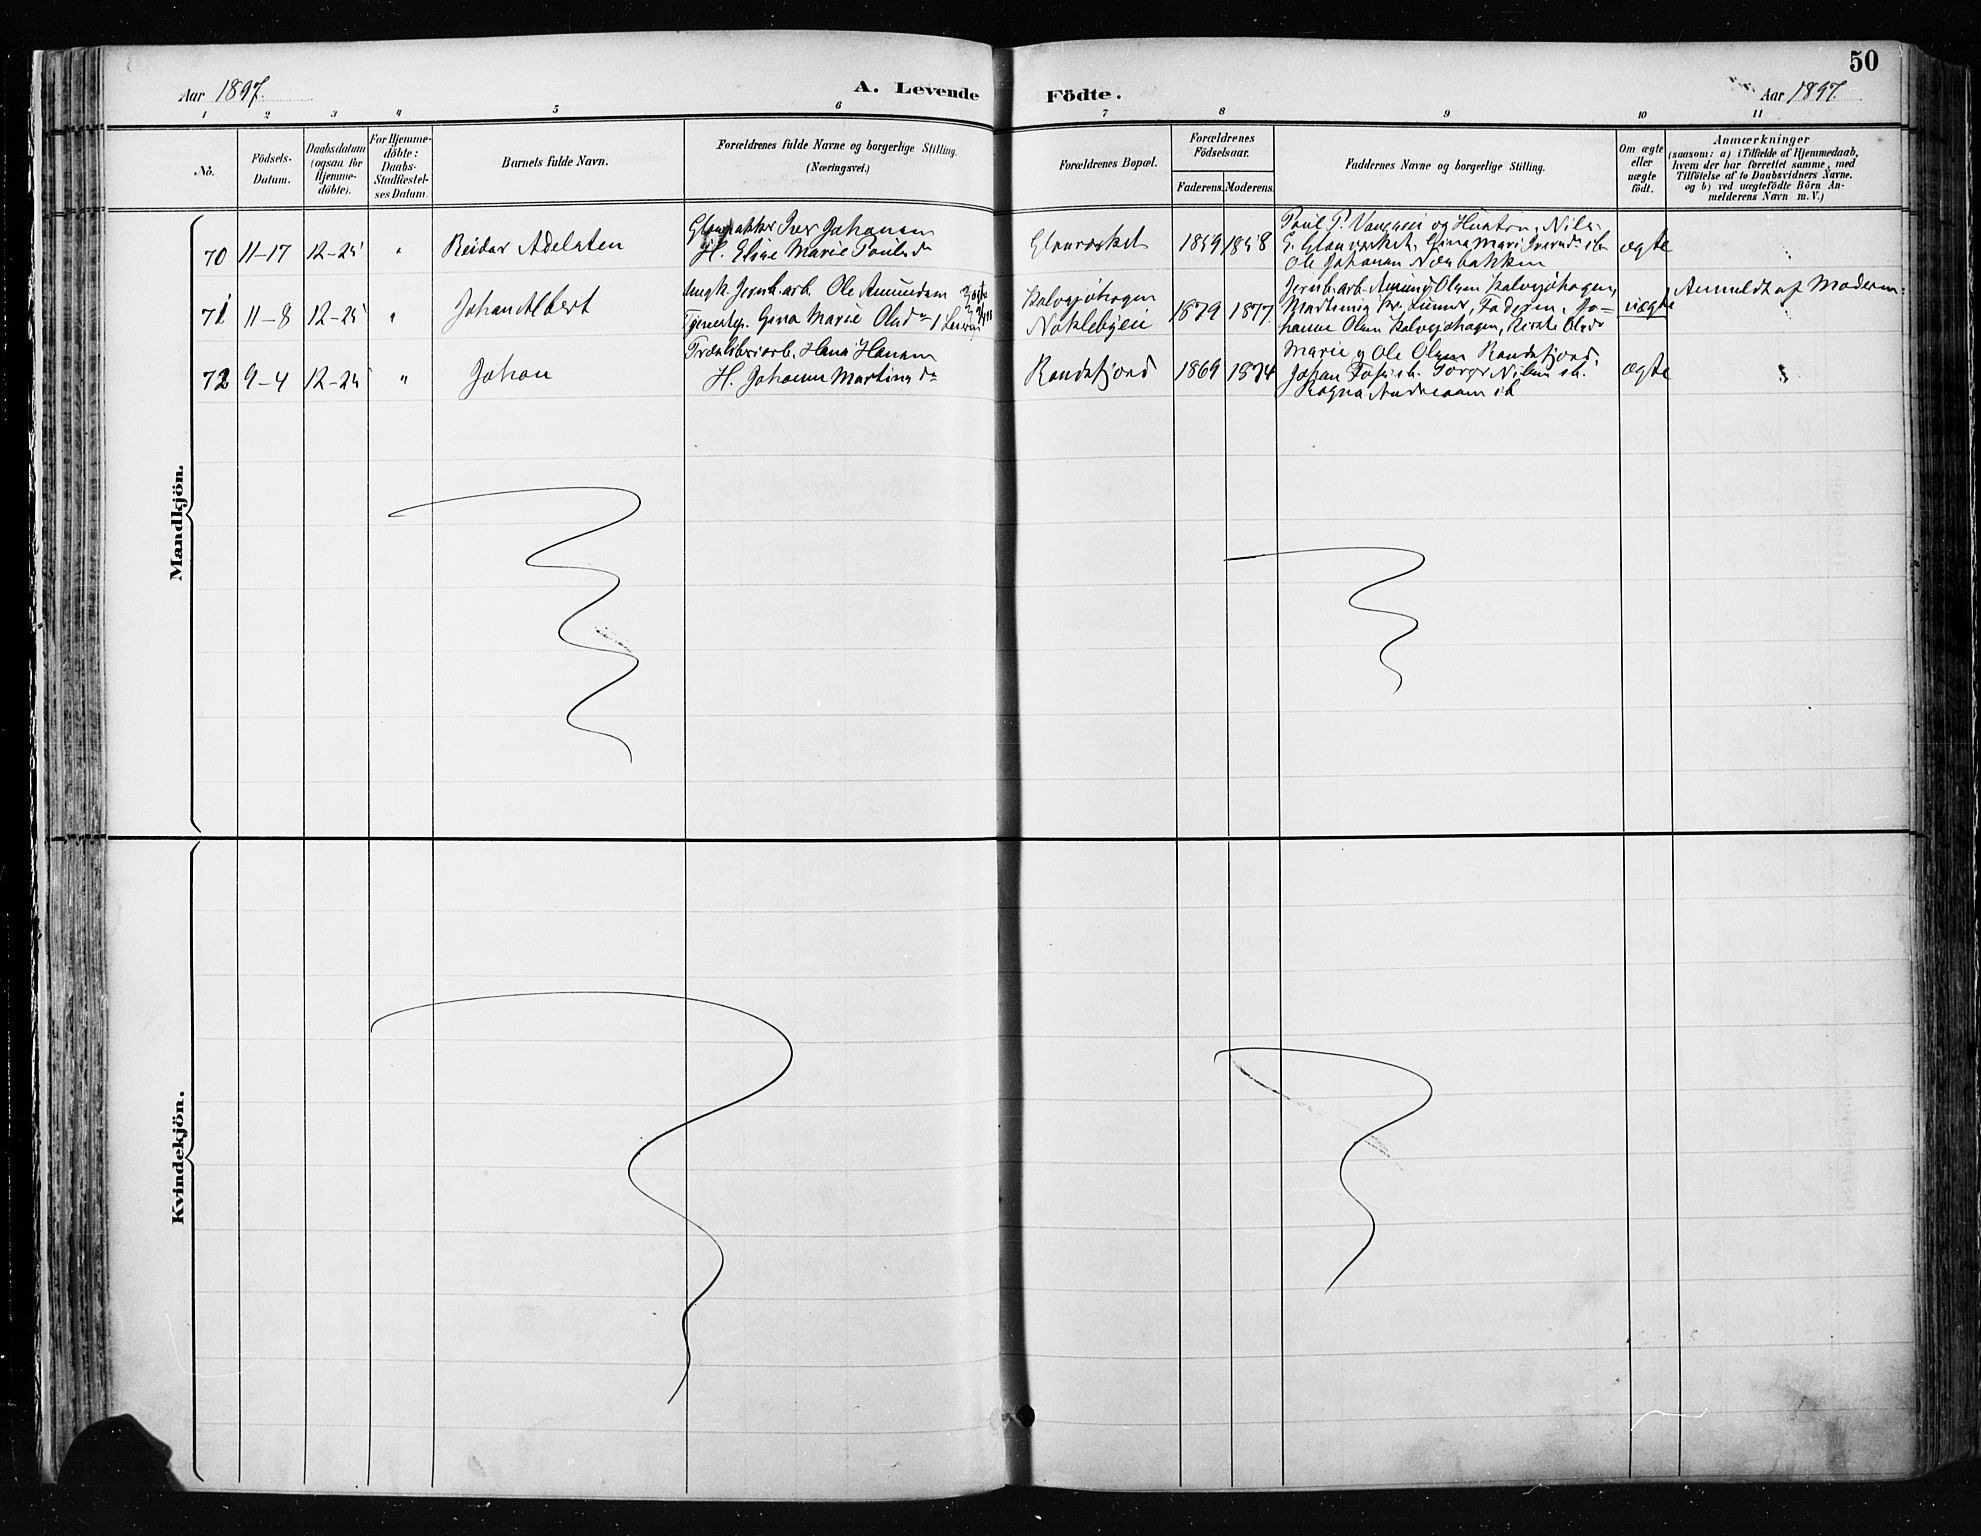 50
Aar 1897.
A. Levende
Födte.
Aar 1897.
1 2 3 4 5 6
7 8 9 10 11
No.
Födsels-
Datum.
Daabsdatum
(ogsaa for
Hjemme-
döbte).
For Hjemme-
döbte:
Daabs-
Stadfæstel-
ses Datum.
Barnets fulde Navn.
Forældrenes fulde Navne og borgerlige Stilling.
(Næringsvei.)
Forældrenes Bopæl.
Forældrenes
Födselsaar.
Faderens.
Moderens.
Faddernes Navne og borgerlige Stilling.
Om ægte
eller
uægte
födt.
Anmærkninger
(saasom: a) i Tilfælde af Hjemmedaab,
hvem der har forrettet samme, med
Tilföielse af to Daabsvidners Navne.
og b) ved uægtefödte Börn An-
melderens Navn m. V.)
Mandkjön.
70
11-17
12-25
"
Reidar Adelsten
Iver Johansen
H. Elise Marie Paulsdr
Glasværket
1859
1858
Paul P. og Hustru, Nils
G. Glasværket, Gina Mari
Ole Johansen Næsbakken
ægte
71
11-8
12-25
"
Johan Albert
Ungk. Jernb.arb. Ole Amundsen
Tjenestep. Gina Marie Olsdr
Kalvsjøhagen
Nøklebyeie
1879
1877
Jernb.arb. Amund Olsen Kalvsjøhagen,
Lunner, Faderen, Jo=
hanne Olsen Kalvsjøhagen, Olsdr
uægte
Anmeldt af Moderen
72
9-4
12-25
"
Johan
Træsliberiarb. Hans Hansen
H. Johanne Martinsdr
Randsfjord
1869
1874
Marie og Ole Olsen Randsfjord,
Johan Nilsen sts.
Ragna Andreasen
ægte
"
Kvindekjön.